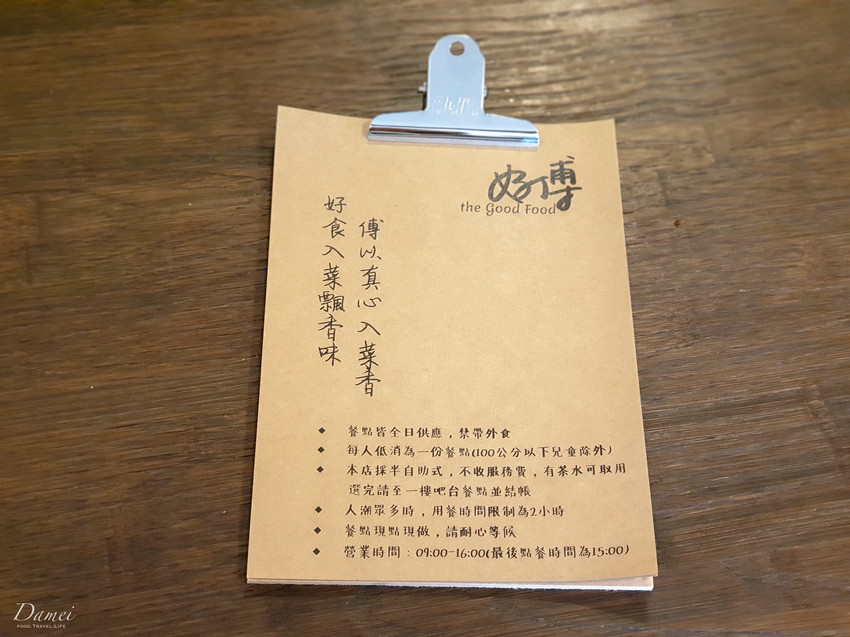 好傅
the Good Food
好食入菜飄香味
傅以真心入菜香
◆ 餐點皆全日供應，禁帶外食
◆ 每人低消為一份餐點(100公分以下兒童除外)
◆ 本店採半自助式，不收服務費，有茶水可取用
選完請至一樓吧台餐點並結帳
◆ 人潮眾多時，用餐時間限制為2小時
◆ 餐點現點現做，請耐心等候
◆ 營業時間：09:00-16:00(最後點餐時間為15:00)
Damei
FOOD.TRAVEL.LIFE